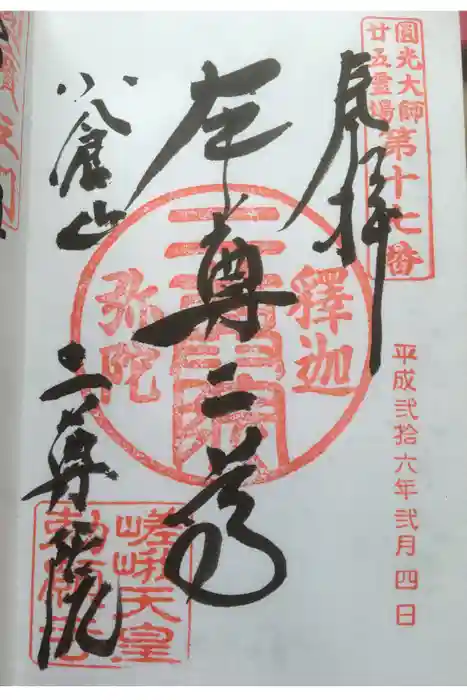 圓光大師
廿五霊場
第十七番
奉拝
平成弐拾六年弐月四日
本尊二尊
釋迦
弥陀
小倉山
二尊院
嵯峨天皇
勅願所